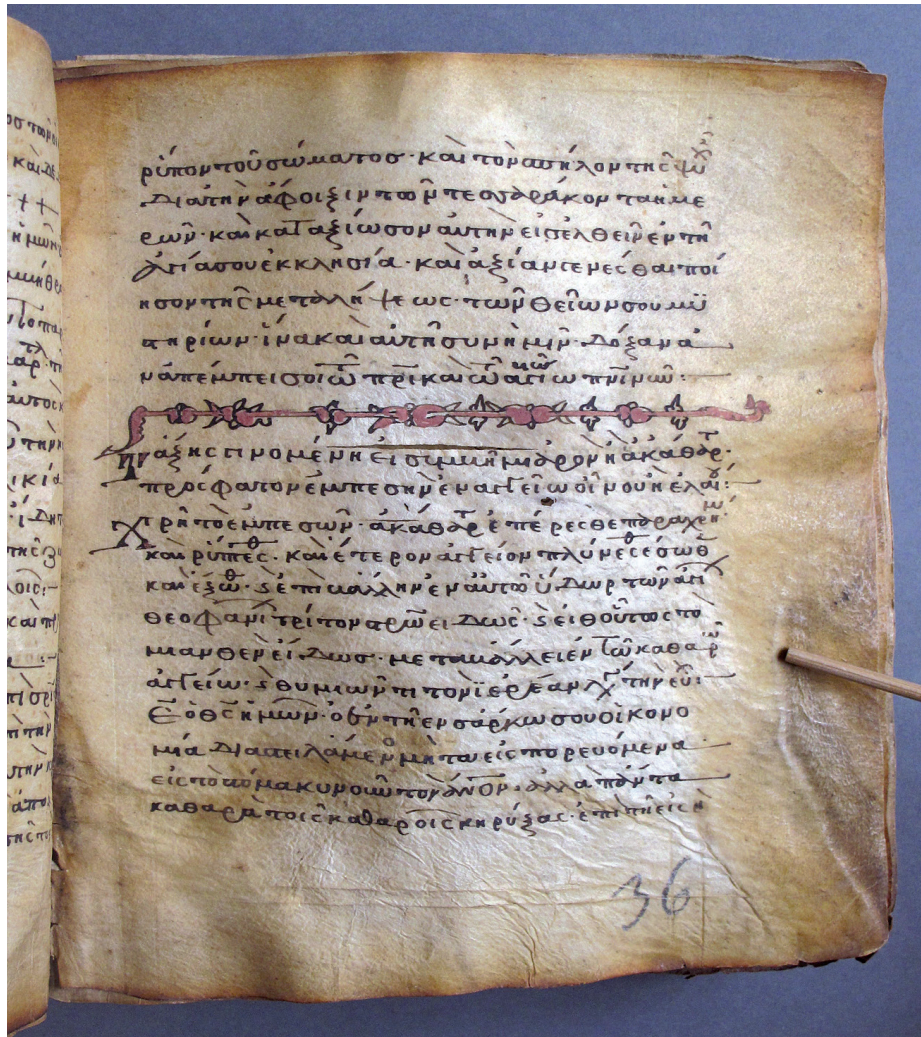 ρύπον τοῦ σώματος· καὶ τὸν ασπηλον τῆς ψυχ
Δια τὴν ἀφοιξιν τῶν τεσσάρακοντα ημε
ρῶν· καὶ καταξίωσον αυτην εἰσελθεῖν ἐν τῇ
ἁγία σου ἐκκλησία· καὶ ἀξίαν γενέσθαι ποί
ησον τῆς μεταλήψεως· τῶν θείων σου μυ
στηρίων· ἵνα καὶ αυτη συν ημῖν· Δόξαν α
ναπέμπει σοι τῶ πρὶ καὶ τῶ υἱῶ ἁγίω πνὶ νῦν:
Τάξης γινομένη εἰς μιμνιδρον ἡ ἀκάθαρτ·
πρόσφατον ἐμπεσὴν ἐν αγγείω οἴνου ἡ ελαί:
Χρὴ τὸ ἐμπεσὼν· ἀκάθαρτ ἐπέρεσθε παραχρημ
καὶ ρίπεσθ· καὶ ἕτερον αγγεῖον πλύνεσθ ἔσωθ
καὶ ἔξωθ· ϗ ἐπιβάλλην ἐν αὐτῶ ὕδωρ τῶν ἁγι
θεοφανὶ τρίτον σταυροειδῶς· ϗ εἶθ οὕτως τὸ
μιανθὲν εἶδως· μεταβάλλει ἐν τῶ καθαρῶ
ἀγγείω· ϗ θυμιῶντι τὸν ϊερέαν λέγ τὴν εὐχ:
Ὁ θς ἡμῶν· ὁ ἐν τῇ ενσάρκω σου οἰκονο
μία Διαστειλάμενος μὴ τὰ εἰσπορευόμενα
εἰς τὸ στόμα κυνοιῶ τὸν ἄνον· ἀλλα πάντα
καθαρὰ τοῖς καθαροῖς κηρύξας· ἐπι της εἰς ἡ
36